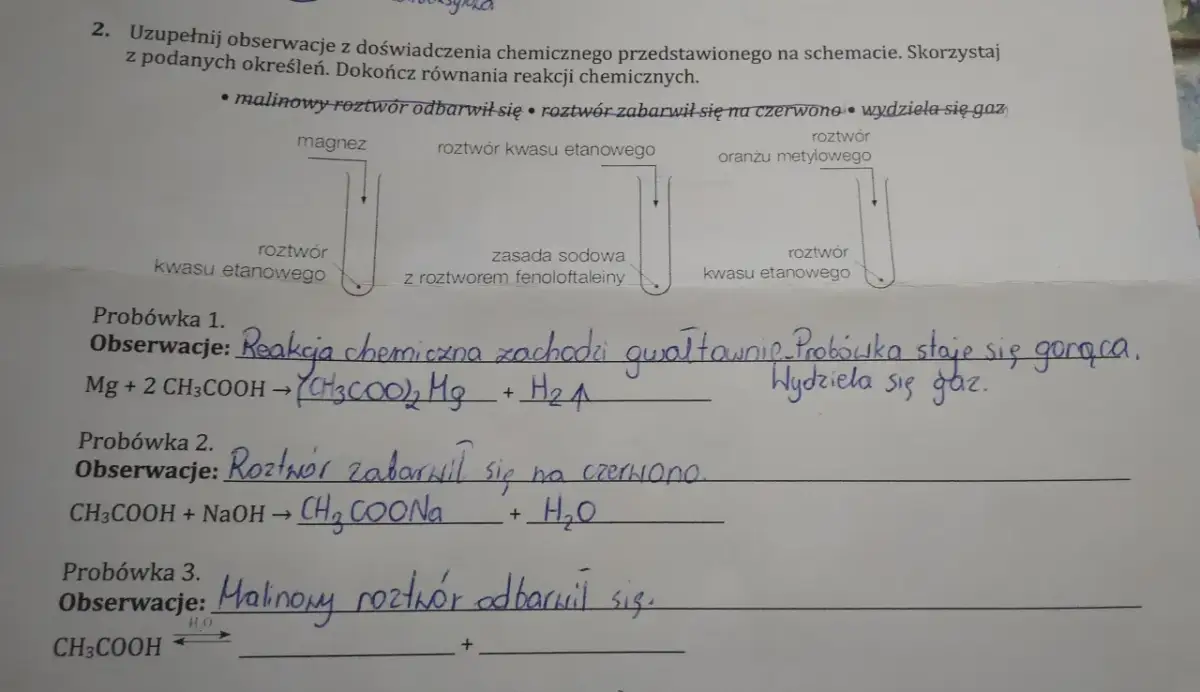 2. Uzupełnij obserwacje z doświadczenia chemicznego przedstawionego na schemacie. Skorzystaj
z podanych określeń. Dokończ równania reakcji chemicznych.
• malinowy roztwór odbarwił się • roztwór zabarwił się na czerwono • wydziela się gaz
magnez
roztwór kwasu etanowego
roztwór
oranżu metylowego
roztwór
kwasu etanowego
zasada sodowa
z roztworem fenoloftaleiny
roztwór
kwasu etanowego
Probówka 1.
Obserwacje: Reakcja chemiczna zachodzi gwałtownie. Probówka staje się gorąca.
Wydziela się gaz.
Mg + 2 CH₃COOH → (CH₃COO)₂Mg + H₂↑
Probówka 2.
Obserwacje: Roztwór zabarwił się na czerwono.
CH₃COOH + NaOH → CH₃COONa + H₂O
Probówka 3.
Obserwacje: Malinowy roztwór odbarwił się.
CH₃COOH ⇄ H₂O +